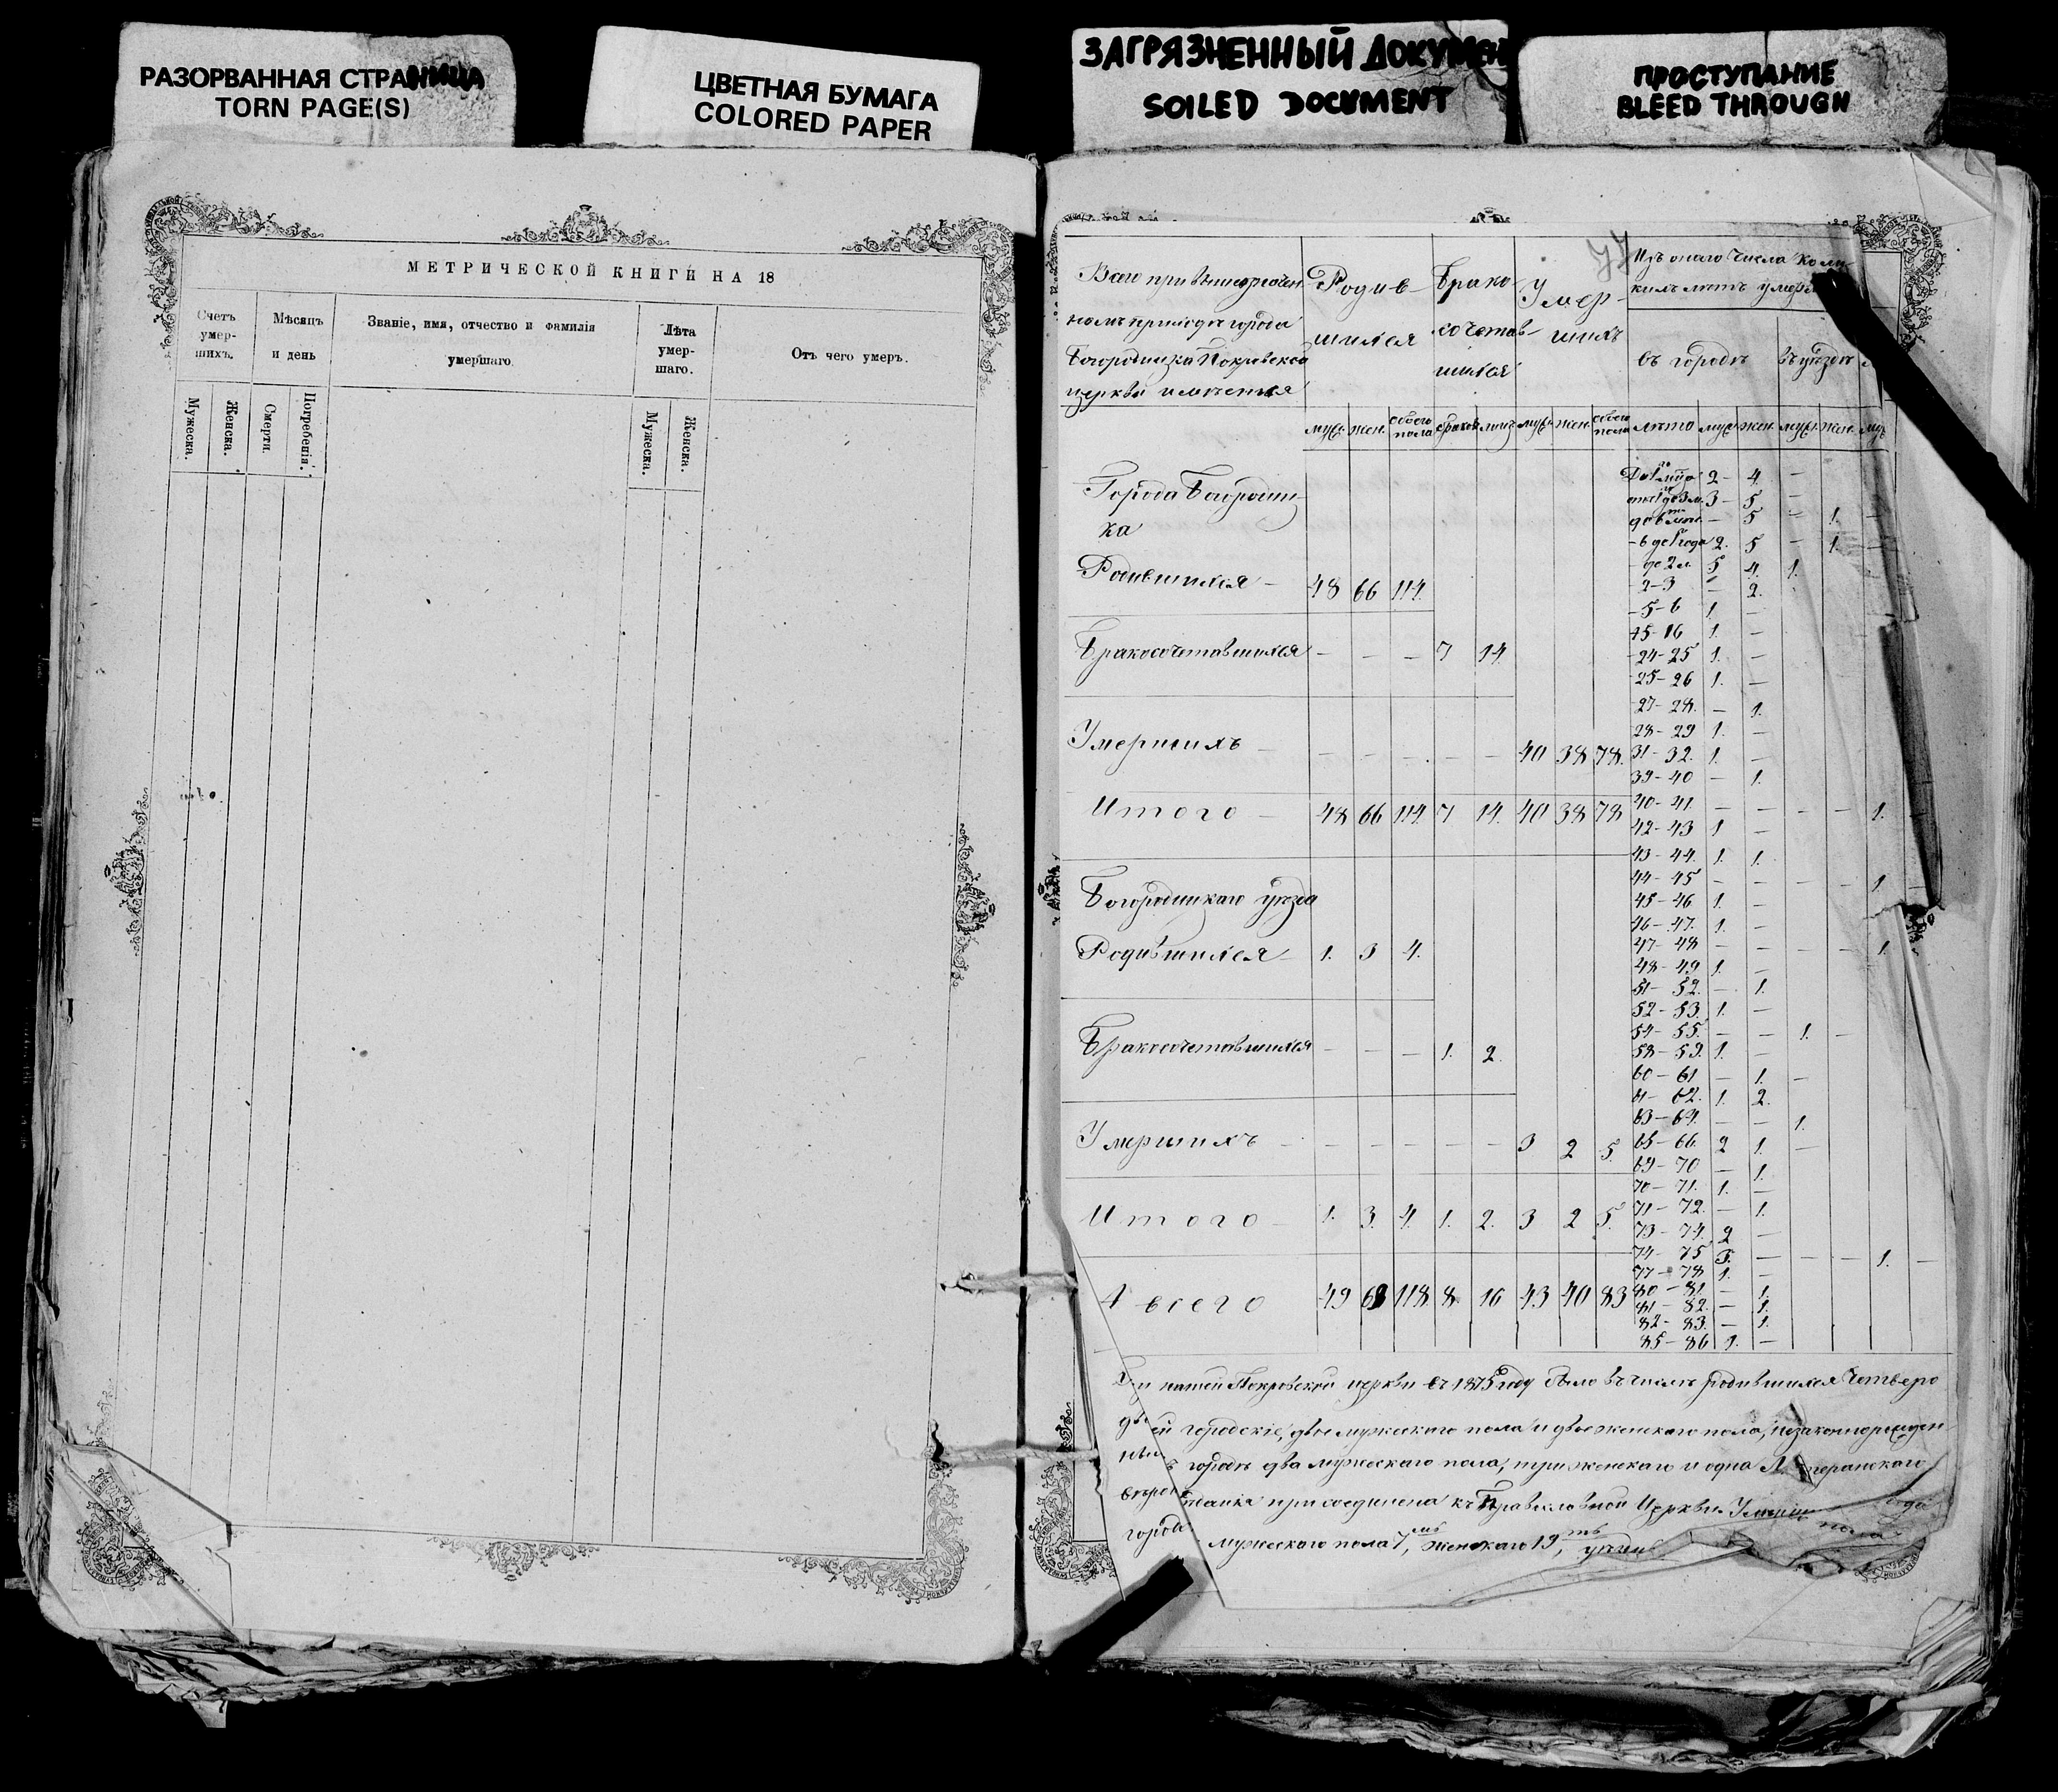 РАЗОРВАННАЯ СТРАНИЦА
TORN PAGE(S)
ЦВЕТНАЯ БУМАГА
COLORED PAPER
ЗАГРЯЗНЕННЫЙ ДОКУМЕН
SOILED DOCUMENT
ПРОСТУПАНИЕ
BLEED THROUGH
МЕТРИЧЕСКОЙ КНИГИ НА 18
Счетъ умер-шихъ.
Мѣсяцъ и день
Званіе, имя, отчество и фамилія умершаго.
Лѣта умер-шаго.
Отъ чего умеръ.
Мужеска.
Женска.
Смерти.
Погребенія.
Мужеска.
Женска.
Всего при
номъ приходѣ города
Богородицка Покровской
церкви имѣется
Родив-шихся
Брако-сочетав-шихся
Умер-шихъ
Изъ онаго числа коли-
кихъ лѣтъ умер
въ городѣ
въ уѣздѣ
муж. жен. обоего пола браков. лицъ муж. жен. обоего пола лѣта муж. жен. муж. жен. муж
Города Богородиц-
ка
Родившихся — 48 66 114.
Бракосочетавшихся — — — 7 14
Умершихъ — — — — — — 40 38 78.
Итого — 48 66 114 7 14. 40 38 78
Богородицкаго уѣзда
Родившихся — 1. 3 4.
Бракосочетавшихся — — — 1. 2.
Умершихъ — — — — — — 3 2 5.
Итого — 1. 3. 4. 1. 2. 3 2 5.
А всего 49 69 118. 8. 16 43 40 83
До 1 мѣс. 2 — 4. —
3 — 5 —
— 5 — 1. —
— 6 до 1 года 2. 5 — 1. —
— до 2 л. 5 4. 1.
— 2 — 3 — 2.
— 5 — 6 1. —
15 — 16 1. —
24 — 25 1. —
25 — 26 1. —
27 — 28. — 1.
28 — 29 1. —
31 — 32. 1. —
39 — 40 — 1.
40 — 41. — — — — 1.
42 — 43 1 —
43 — 44. 1. 1.
44 — 45 — — — — 1. —
45 — 46 1. —
46 — 47. 1. —
47 — 48 — — — — 1.
48 — 49 1. —
51 — 52. — 1.
52 — 53. 1. —
54 — 55. — — 1. —
58 — 59. 1. —
60 — 61 — 1. —
61 — 62. 1. 2.
63 — 64. — — 1.
65 — 66. 2 1. —
69 — 70 — 1.
70 — 71. 1. —
71 — 72. — 1.
73 — 74. 2 —
74 — 75 — — — 1. —
77 — 78 1. —
80 — 81 — 1.
81 — 82. — 1.
82 — 83. — 1.
85 — 86 1. —
При нашей Покровской церкви въ 1875 году было въ числѣ родившихся четверо
городскіе, двое мужескаго пола и двое женскаго пола, незаконнорожден
городѣ два мужескаго пола, три женскаго и одна
присоединена къ Православной Церкви
города мужескаго пола 7, женскаго 19,